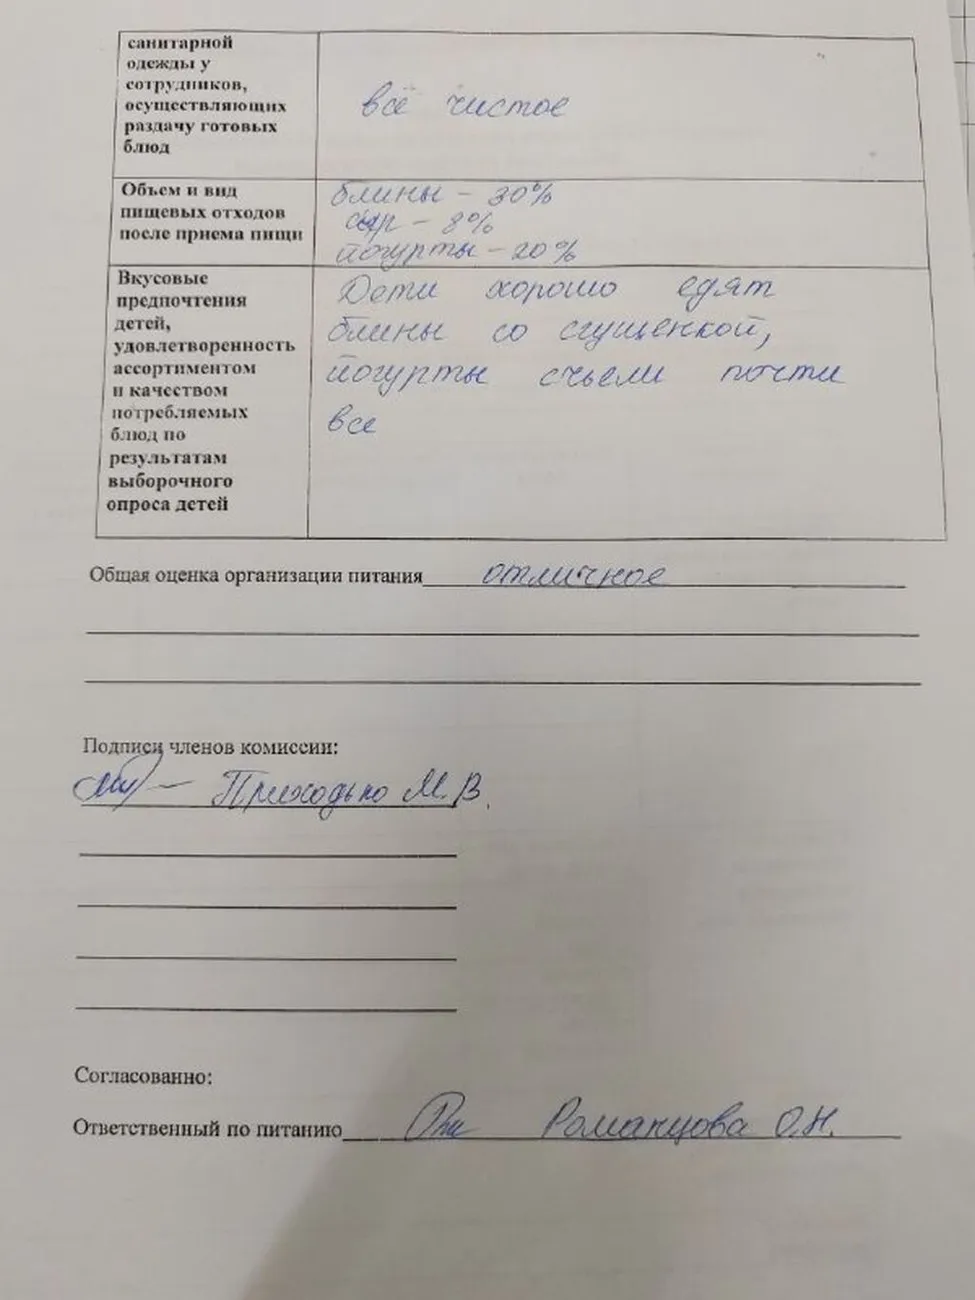 санитарной
одежды у
сотрудников,
осуществляющих
раздачу готовых
блюд
всё чистое
Объем и вид
пищевых отходов
после приема пищи
блины - 30%
сыр - 8%
йогурты - 20%
Вкусовые
предпочтения
детей,
удовлетворенность
ассортиментом
и качеством
потребляемых
блюд по
результатам
выборочного
опроса детей
Дети хорошо едят
блины со сгущенкой,
йогурты съели почти
все
Общая оценка организации питания отличное
Подписи членов комиссии:
Приходько М.В.
Согласованно:
Ответственный по питанию Романцова О.Н.